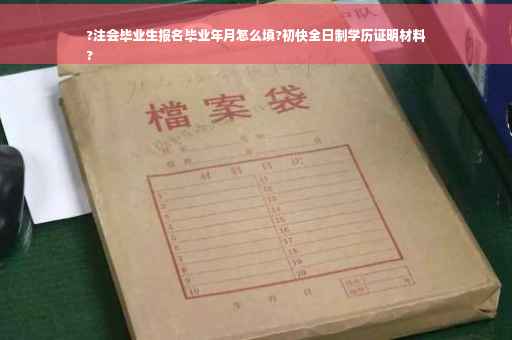 ?注会毕业生报名毕业年月怎么填?初快全日制学历证明材料
?
檔案袋
材料目次
1 11
2 12
3 13
4 14
5 15
6 16
7 17
8 18
9 19
10 20
年 月 日